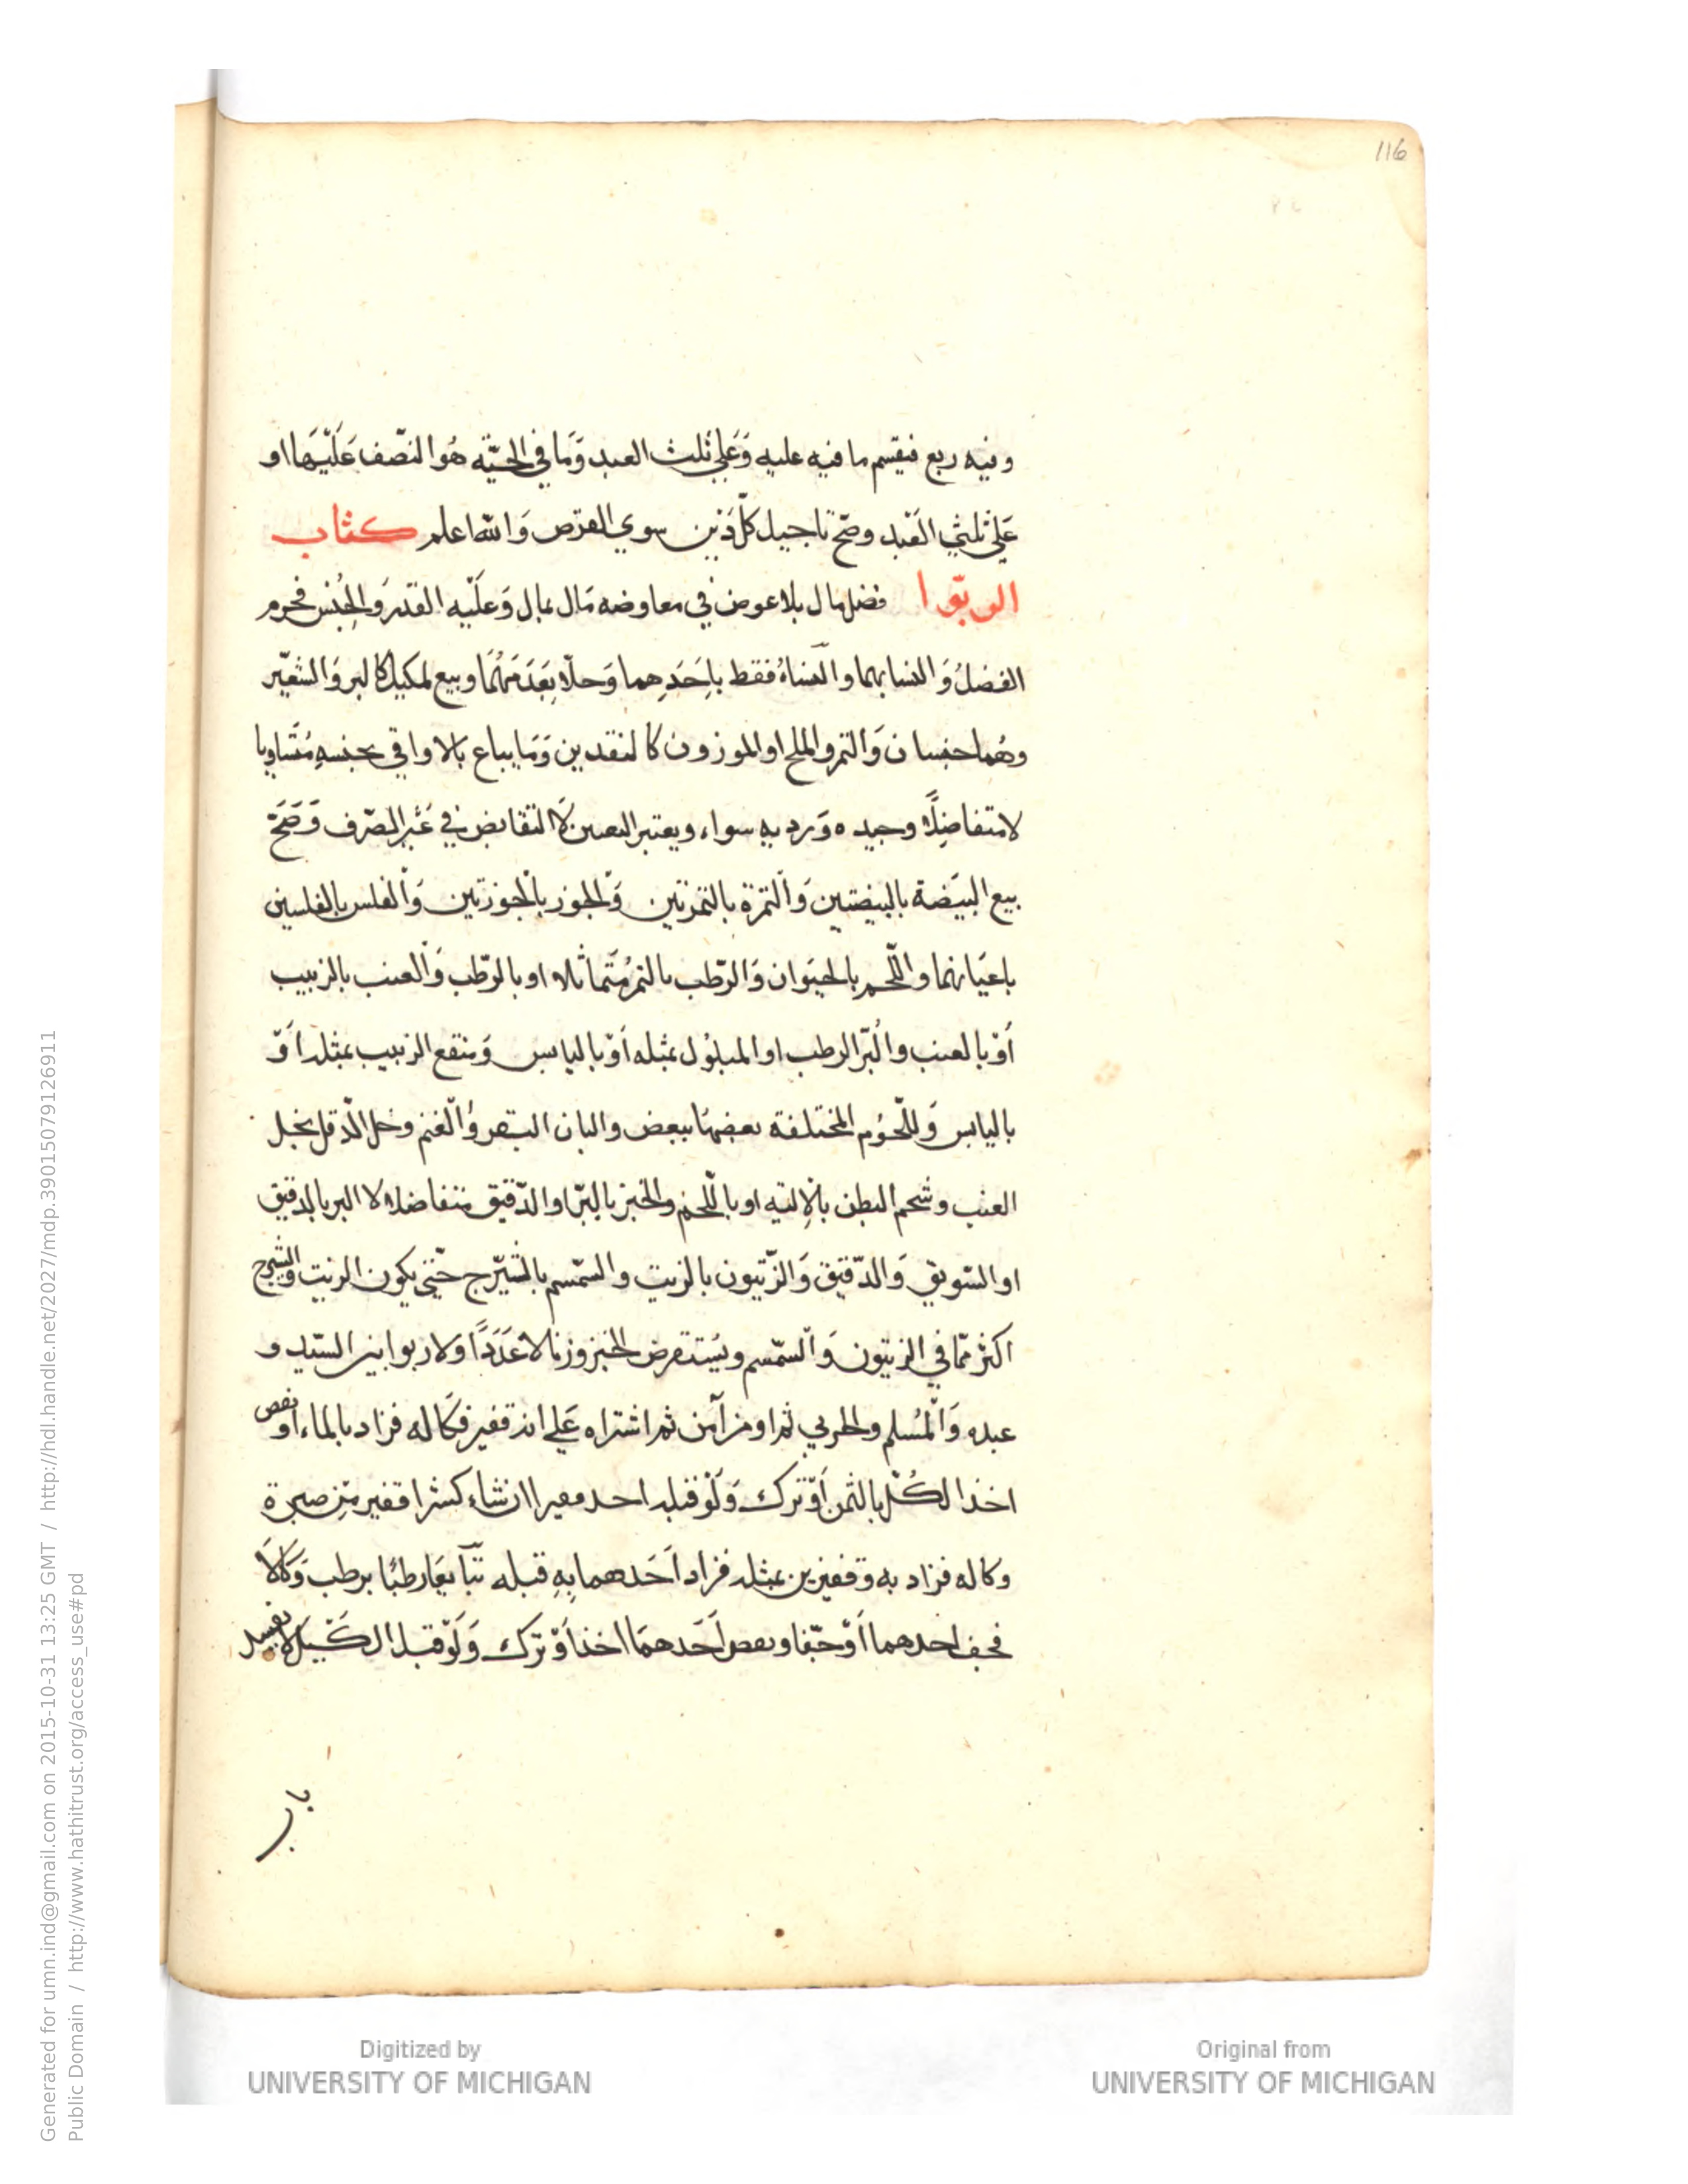 116
وفيه ربع فيقسم ما فيه عليه وَعَلي ثلث العبد وَمَا في الحيّة هُوا لنّصف عَلَيْهَا او
عَلي ثلثي العَبد وصّح تاجيل كلّ دَين سوي القرض وَالله اعلم كتاب
الربوا فضل مال بلا عوض في معاوضه مَال بمال وَعلّيه القدر وَالجِنْس فحرم
الفضلُ وَالنسا بهما والنّساءُ فقط باِحَدِهما وَحلّا بِعَدَمهُمَا وبيع لمكيل كالبر وَالشعيّر
وهُما جنسان وَالتمر والملح او الموزون كالنقدين وَمَا يباع بالاواقي بجنسهِ مُتَساويا
لا متفاضِلًا وجيده وَرديه سواء ويعتبر التعين لَا التقابض في غَير الصّرف وَصَحّ
بيع البيَضة بالبيضتين وَالتمرة بالتمرتين وَالجوز بالجوزتين وَالفلس بالفلسين
باعيَانهما واللّحم بالحيَوان وَالرّطب بالتمر مُتَماثلا او بالرّطب وَالعنب بالزبيب
أوّ بالعنب والُبّر الرطب او المبلوُل بمثله أوّ باليابس وَمنقع الزبيب بمثله اَوّ
باليابس وَللّحوُم المختلفة بعضهَا ببعض والبان البقر وُالغنم وخل الدّقل بخل
العنب وشحم البطن بالِالية او باللّحم والخبز بالبّر او الدّقيق متفاضلا لا البر بالدقيق
او السّويق وَالدّقيق وَالزّتيون بالزيت والسّمسم بالشيّرج حتّي يكون الزيت والشيرج
اكثر ممّا في الزيتون وَالسّمسم ويُستقرض الخبز وزنا لا عَدَدًا وَلا ربوا بين السّيد و
عبده وَالْمُسلم والحربي ثم او من آمن ثم اشتراه عَلي انه قفيز فكَاله فزاد بالماء او نقص
اخذ الكُلّ بالثمن أوّ ترك وَلَوْ قبله احد معيرا ان شاء كشرا قفيز مِّن صبرة
وكاله فزاد به وقفيزين بمثله فزاد اَحَدهما بِهِ قبله تّبَايعَا رطبًا برطب وَكَالَا
فجف احدهما اَوّ جفّا ونقص اَحَدهمَا اخذ اَوّ ترك وَلَوْ قبل الكَيّل لا يفسد
باب
Generated for umn.ind@gmail.com on 2015-10-31 13:25 GMT / http://hdl.handle.net/2027/mdp.39015079126911
Public Domain / http://www.hathitrust.org/access_use#pd
Digitized by
UNIVERSITY OF MICHIGAN
Original from
UNIVERSITY OF MICHIGAN